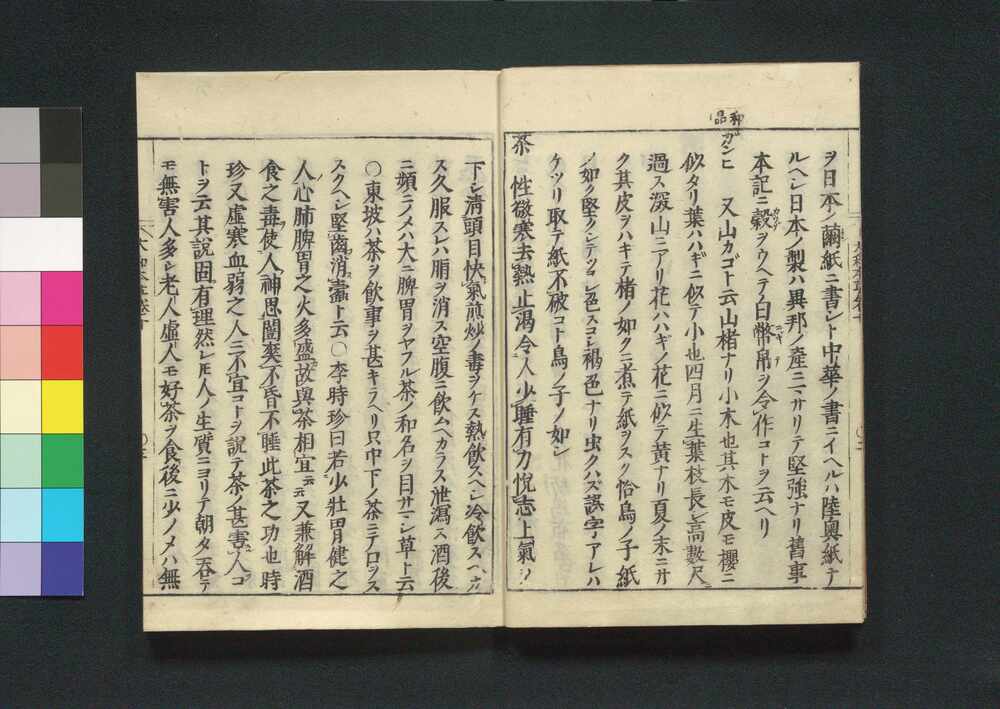 ヲ日本ノ繭紙ニ書シト中華ノ書ニイヘルハ陸奥紙テ
ルヘシ日本ノ製ハ異邦ノ産ニマサリテ堅強ナリ舊事
本記ニ穀ヲウヘテ白幣帛ヲ令作コトヲ云ヘリ
和品
ガンヒ 又山カゴト云山楮ナリ小木也其木モ皮モ櫻ニ
似タリ葉ハハギニ似テ小也四月ニ生葉枝長シ高數尺ニ
過ス深山ニアリ花ハハギノ花ニ似テ黄ナリ夏ノ末ニサ
ク其皮ヲハキテ楮ノ如クニ煮テ紙ヲスク恰鳥ノ子紙
ノ如ク堅クシテツヨシ色スコシ褐色ナリ虫クハズ誤字アレハ
ケツリ取テ紙不破コト鳥ノ子ノ如シ
茶 性微寒去熱止渇令人少睡有力悦志上氣ヲ
下シ清頭目快氣煎炒ノ毒ヲケス熱飲スヘシ冷飲スヘカラ
ス久服スレハ脂ヲ消ス空腹ニ飲ムヘカラス泄瀉ス酒後
ニ頻ニノメハ大ニ脾胃ヲヤフル茶ノ和名ヲ目サマシ草ト云
○東坡ハ茶ヲ飲事ヲ甚キラヘリ只中下ノ茶ニテ口ヲス
スクヘシ堅齒消蠹ト云○李時珍曰若少壯胃健之
人心肺脾胃之火多盛故與茶相宜云云又兼解酒
食之毒使人神思闓爽不昏不睡此茶之功也時
珍又虚寒血弱之人ニ不宜コトヲ説テ茶ノ甚害人コ
トヲ云其説固有理然レ𪜈人ノ生質ニヨリテ朝夕呑テ
モ無害人多シ老人虚人モ好茶ヲ食後ニ少ノメハ無